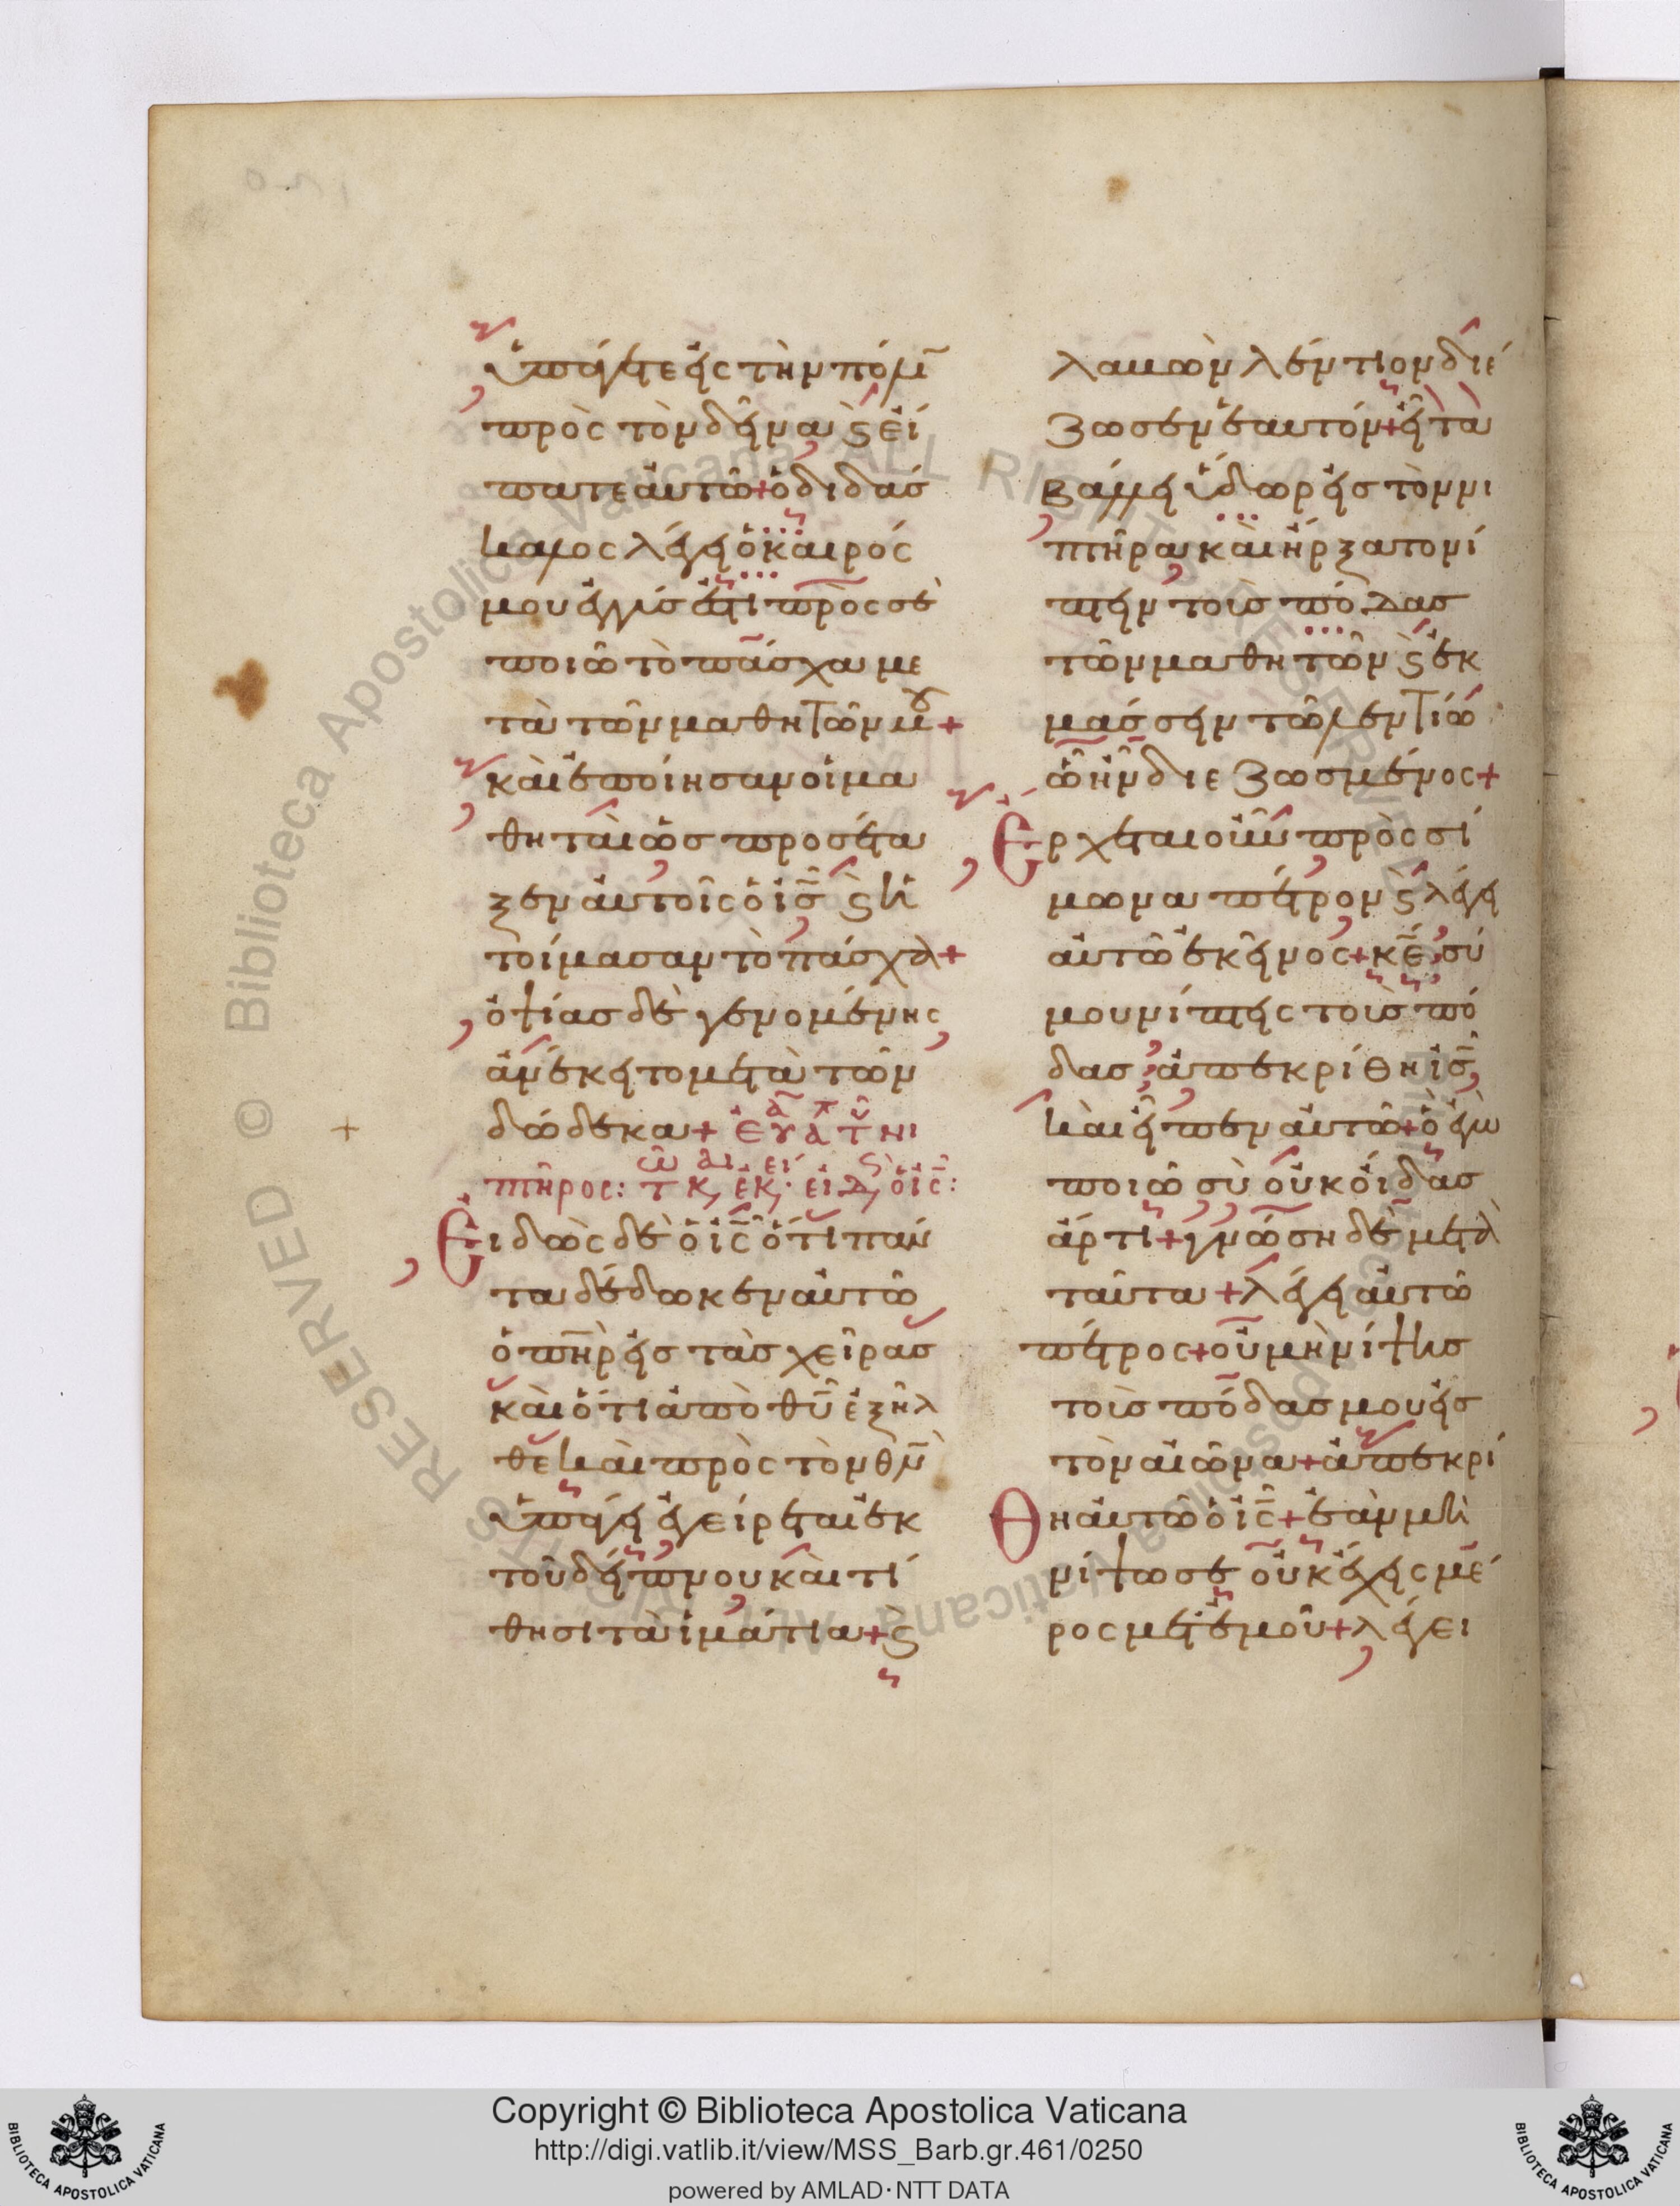 ὑπάγετε εἰς τὴν πόλῖ
πρὸς τὸν δεῖνα ϗ εἴ
πατε αὐτῶ + ὁ διδάσ
καλος λέγει ὁ καιρός
μου ἐγγύς ἐστι πρὸς σὲ
ποιῶ τὸ πάσχα με
τὰ τῶν μαθητῶν μου +
καὶ ἐποίησαν οἱ μα
θηταὶ ὡς προσέτα
ξεν αὐτοῖς ὁ ις̅ ϗ ἡ
τοίμασαν τὸ πάσχα +
ὀψίας δὲ γενομένης
ἀνέκειτο μετὰ τῶν
δώδεκα +
πτῆρος:
Ειδὼς δὲ ὁ ις̅ ὅτι πάν
τα δέδωκεν αὐτῶ
ὁ πη̅ρ εἰς τὰς χεῖρας
καὶ ὅτι ἀπὸ θυ̅ ἐξῆλ
θε καὶ πρὸς τὸν θν̅
ὑπάγει ἐγείρεται ἐκ
τοῦ δείπνου καὶ τί
θησι τὰ ἱμάτια + ϗ
λαβὼν λέντιον διέ
ζωσεν ἑαυτόν + εἶτα
βάλλει ὕδωρ εἰς τὸν νι
πτῆρα καὶ ἤρξατο νί
πτειν τοὺς πόδας
τῶν μαθητῶν ϗ ἐκ
μάσσειν τῶ λεντίω
ὧ ἦν διεζωσμένος +
Ερχεται οὖν πρὸς σί
μωνα πέτρον ϗ λέγει
αὐτῶ ἐκεῖνος + κε̅ σύ
μου νίπτεις τοὺς πό
δας; ἀπεκρίθη ις̅
καὶ εἶπεν αὐτῶ + ὃ ἐγὼ
ποιῶ σὺ οὐκ οἶδας
ἄρτι + γνώση δὲ μετὰ
ταῦτα + λέγει αὐτῶ
πέτρος + οὐ μὴ νίψης
τοὺς πόδας μου εἰς
τὸν αἰῶνα + ἀπεκρί
θη αὐτῶ ὁ ις̅ + ἐὰν μὴ
νίψω σε οὐκ ἔχεις μέ
ρος μετ' ἐμοῦ + λέγει
Copyright © Biblioteca Apostolica Vaticana
http://digi.vatlib.it/view/MSS_Barb.gr.461/0250
powered by AMLAD·NTT DATA
BIBLIOTECA APOSTOLICA VATICANA
BIBLIOTECA APOSTOLICA VATICANA